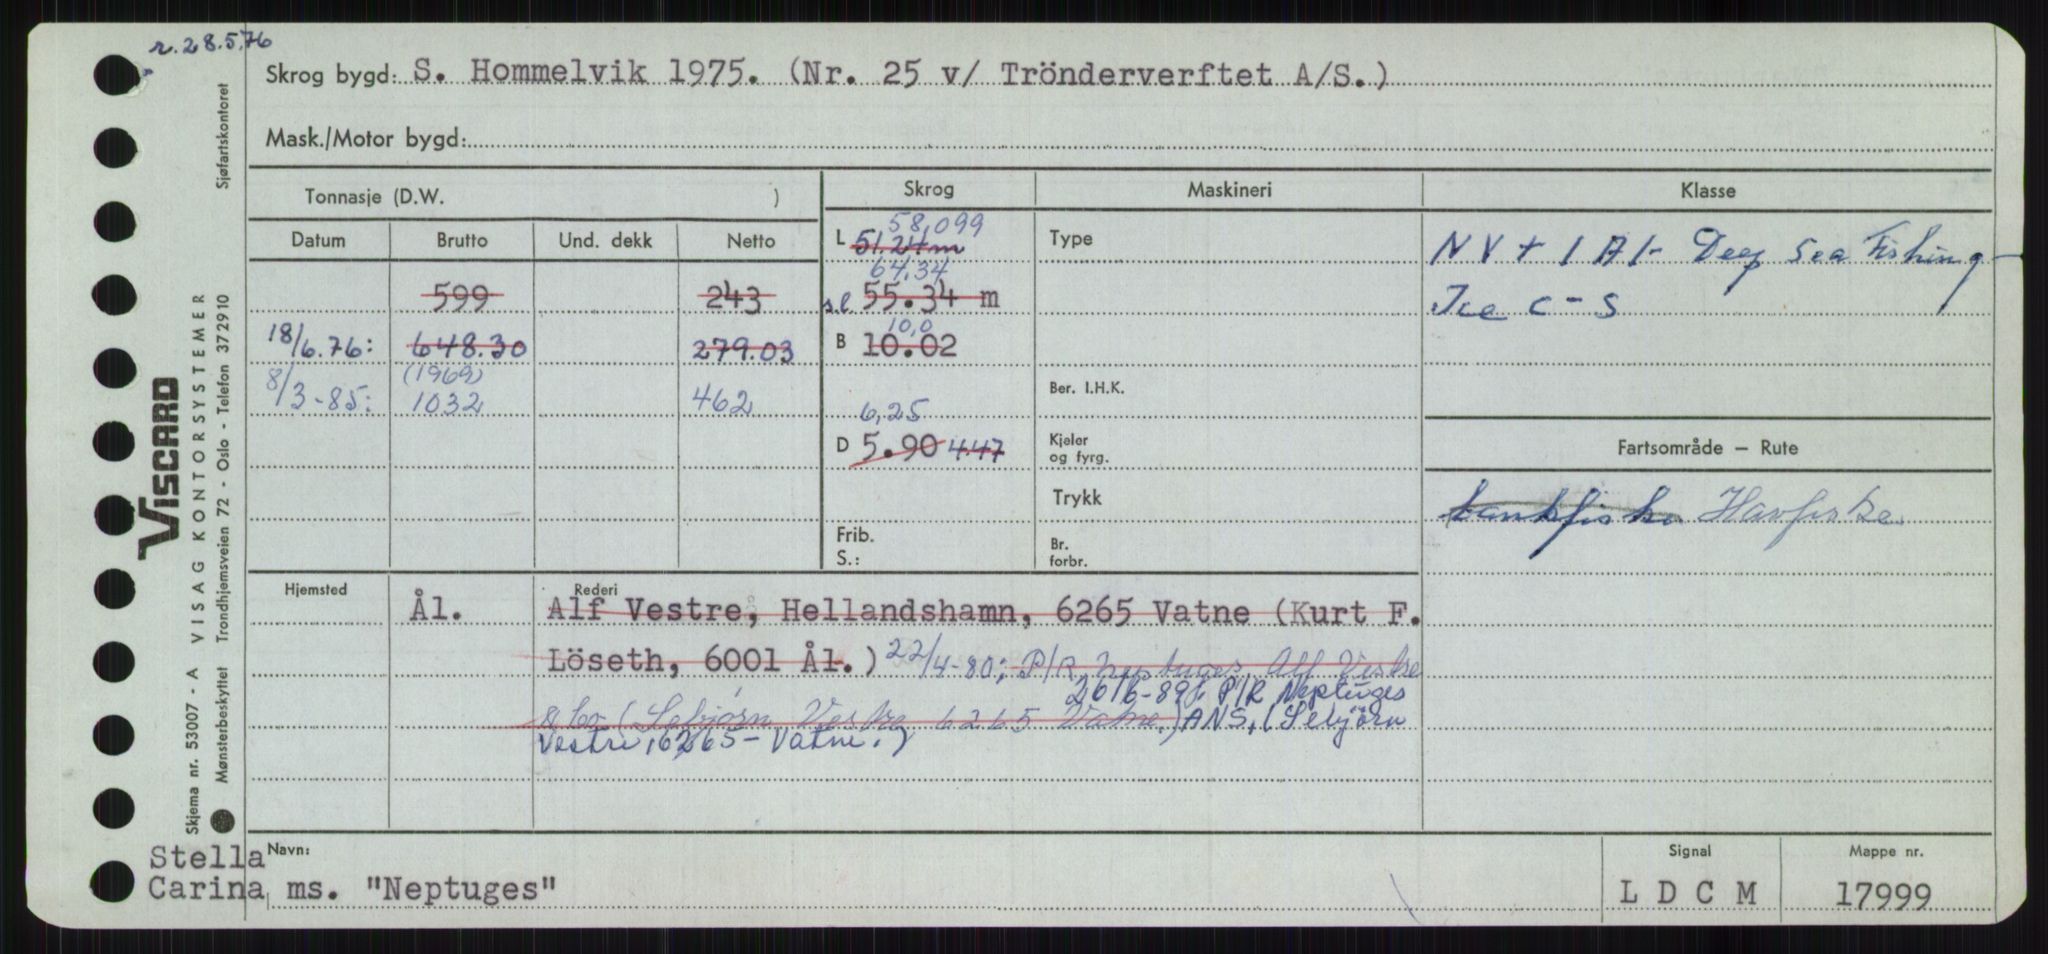 r.28.5.76
Skrog bygd: S. Hommelvik 1975. (Nr. 25 v/ Trönderverftet A/S.)
Mask./Motor bygd:
Tonnasje (D.W. )
Skrog
Maskineri
Klasse
Datum
Brutto
Und. dekk
Netto
599
243
18/6.76: 648.30 279.03
8/3-85: (1969) 1032 462
58,099
L 51.24m
64,34
s.l 55.34 m
10,0
B 10.02
6,25
D 5.90 4.47
Frib.
S.:
Type
Ber. I.H.K.
Kjeler
og fyrg.
Trykk
Br.
forbr.
NV + 1A1- Deep Sea Fishing -
Ice C - S
Fartsområde – Rute
bankfiske Havfiske
Hjemsted
Rederi
Ål.
Alf Vestre, Hellandshamn, 6265 Vatne (Kurt F.
Löseth, 6001 Ål.) 22/4-80: P/R Neptuges, Alf Vestre
26/6-89: P/R Neptuges
& Co (Sebjörn Vestre 6265 Vatne.) ANS. (Sebjörn
Vestre, 6265 - Vatne.)
Navn:
Stella
Carina ms. "Neptuges"
Signal
L D C M
Mappe nr.
17999
Viscard
Skjema nr. 53007 - A VISAG KONTORSYSTEMER
Mønsterbeskyttet Trondhjemsveien 72 - Oslo - Telefon 372910
Sjøfartskontoret